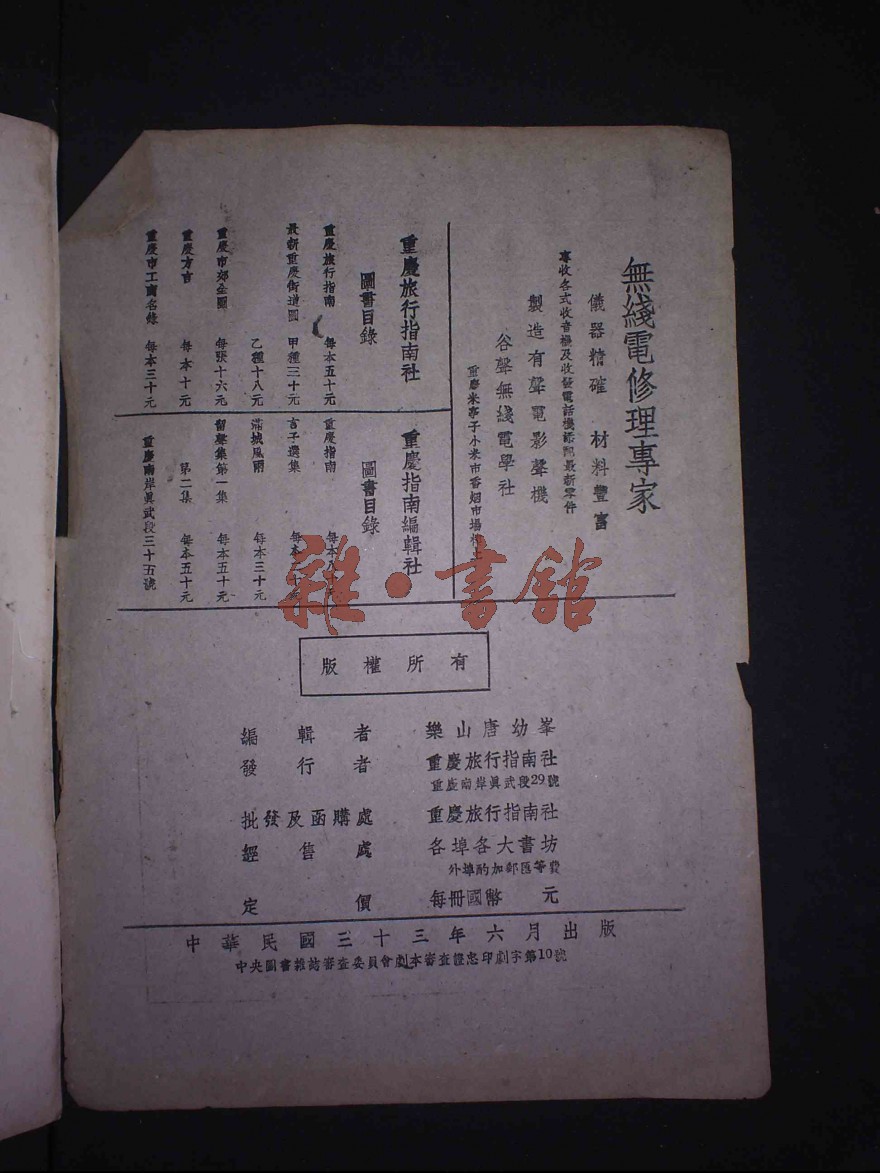 無綫電修理專家
儀器精確 材料豐富
專收各式收音機及收發電話機添配最新零件
製造有聲電影聲機
谷聲無綫電學社
重慶米亭子小米市香烟市場樓上
重慶旅行指南社
圖書目錄
重慶旅行指南 每本五十元
最新重慶街道圖 甲種三十元
乙種十八元
重慶市郊全圖 每張十六元
重慶方言 每本十元
重慶市工商名錄 每本三十元
重慶指南編輯社
圖書目錄
重慶指南 每本
言子選集 每本
滿城風雨 每本三十元
留聲集第一集 每本五十元
第二集 每本五十元
重慶南岸眞武段三十五號
雜·書館
版權所有
編輯者 樂山唐幼峯
發行者 重慶旅行指南社
重慶南岸眞武段29號
批發及函購處 重慶旅行指南社
經售處 各埠各大書坊
外埠酌加郵匯等費
定價 每冊國幣 元
中華民國三十三年六月出版
中央圖書雜誌審查委員會劇本審查證忠印劇字第10號